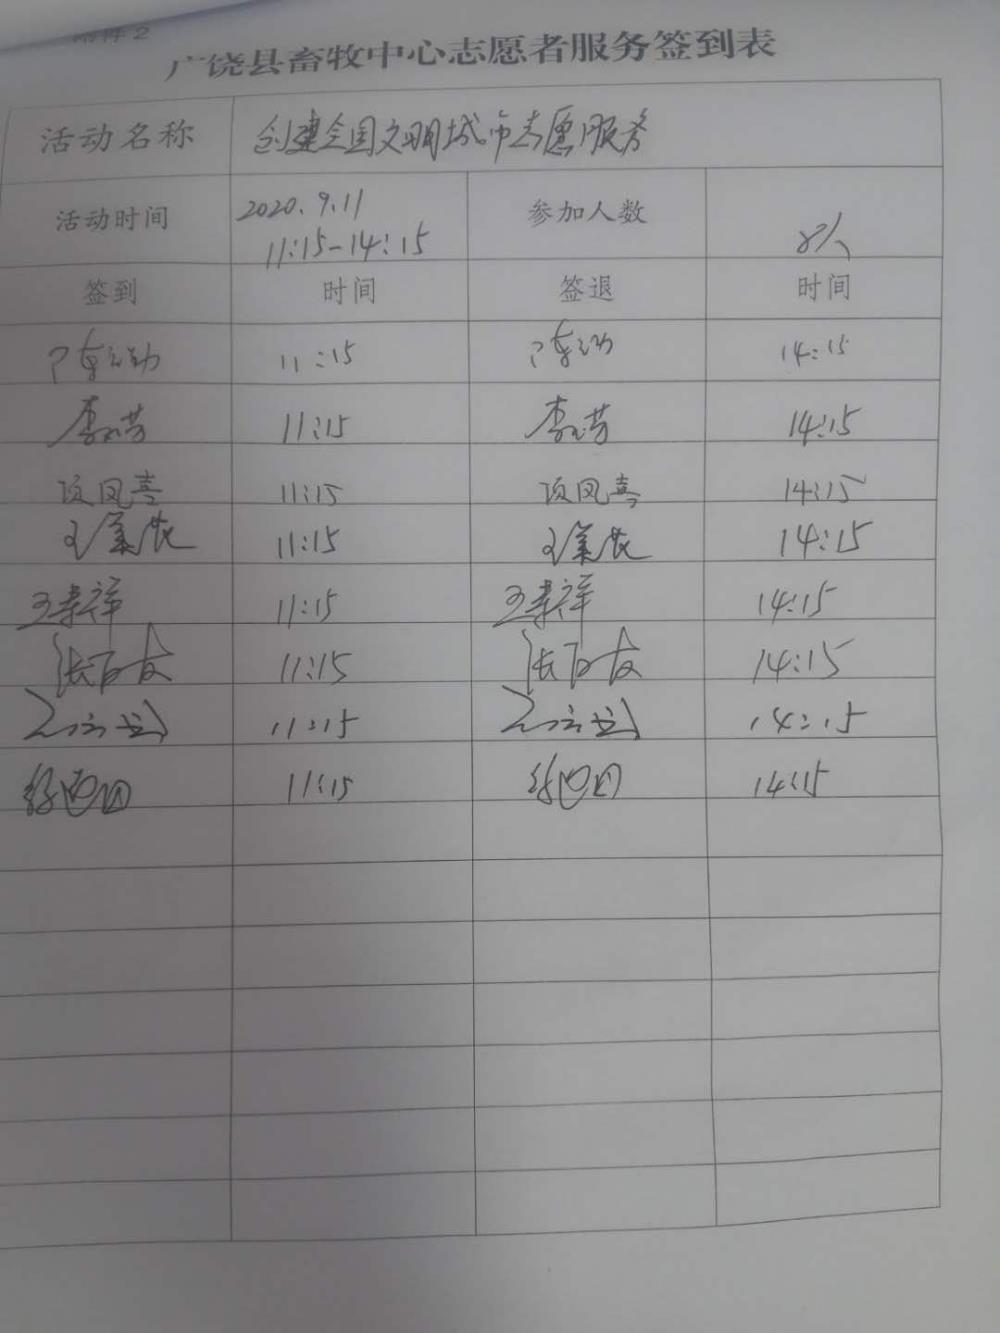 附件2
广饶县畜牧中心志愿者服务签到表
活动名称 创建全国文明城市志愿服务
活动时间 2020.9.11 11:15-14:15 参加人数 8人
签到 时间 签退 时间
11:15 14:15
李 芳 11:15 李 芳 14:15
项凤喜 11:15 项凤喜 14:15
王 11:15 王 14:15
王 祥 11:15 王 祥 14:15
张 友 11:15 张 友 14:15
11:15 14:15
11:15 14:15